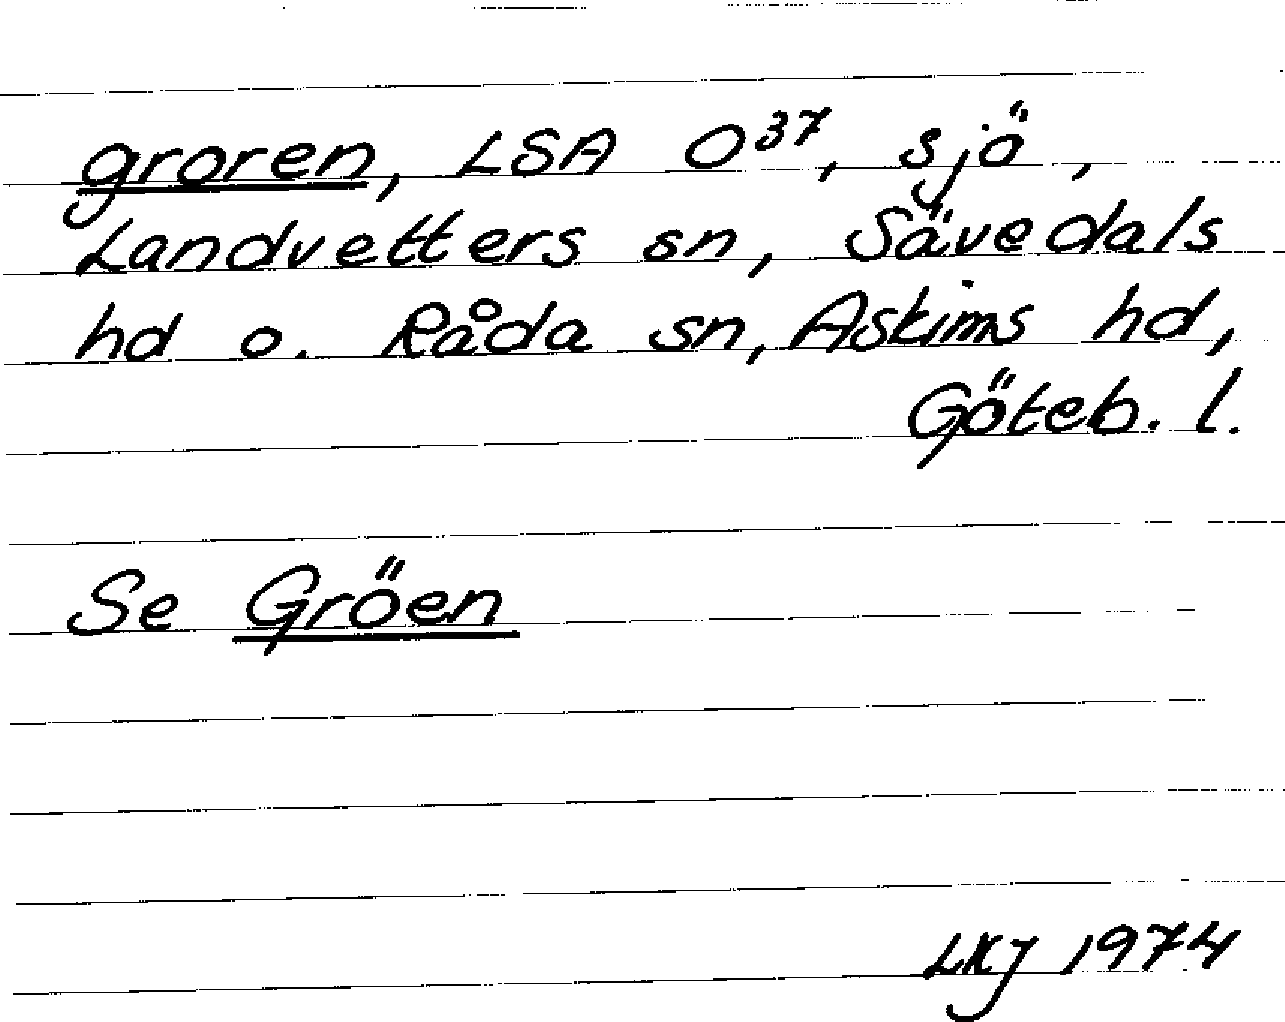 groren, LSA O37, sjö,
Landvetters sn, Sävedals
hd o. Råda sn, Askims hd,
Göteb. l.
Se Gröen
LKJ 1974